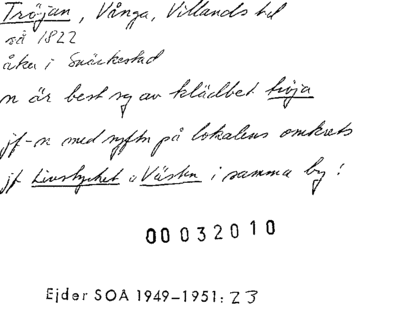 Tröjan, Vånga, Villands hd
så 1822
åker i Snäckestad
n är best sg av klädbet. tröja
jf-n med syftn på lokalens omkrets
jf Livstycket o Västen i samma by!
00032010
Ejder SOA 1949–1951: 23